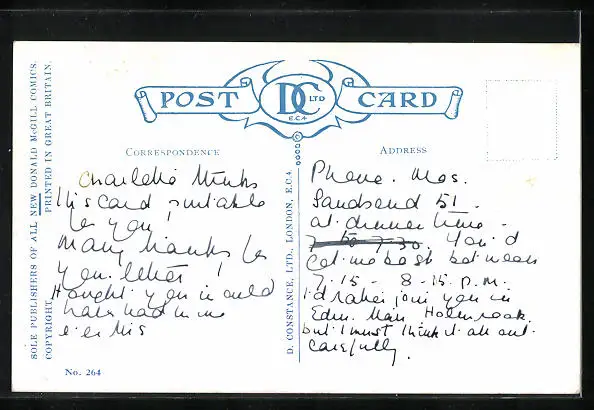 SOLE PUBLISHERS OF ALL NEW DONALD McGILL COMICS.
COPYRIGHT. PRINTED IN GREAT BRITAIN.
POST DC LTD E.C.4 CARD
CORRESPONDENCE
Charlotte thinks
this card suitable
for you!
Many thanks for
your letter!
thought you would
have had me
D. CONSTANCE, LTD., LONDON, E.C.4.
ADDRESS
Phone. Nos.
Sandsend 51.
at dinner time -
7-30. You'd
get me best between
7.15 - 8-15. p.m.
I'd rather join you in
but I must think it all out
carefully.
No. 264